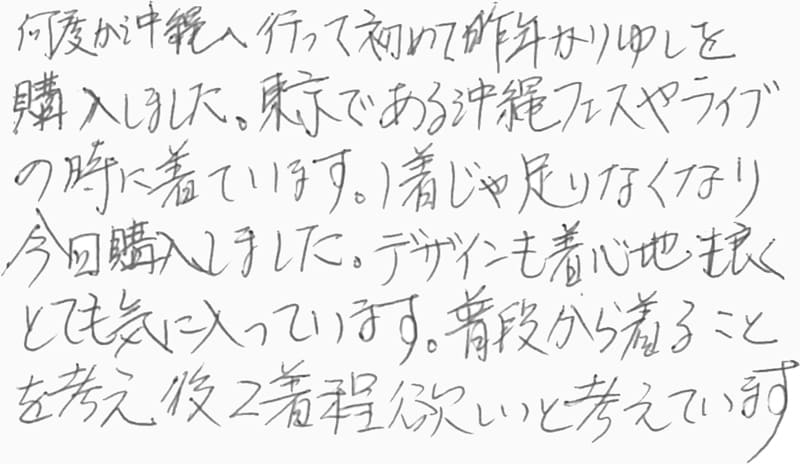 何度か沖縄へ行って初めて昨年かりゆしを
購入しました。東京である沖縄フェスやライブ
の時に着ています。1着じゃ足りなくなり
今回購入しました。デザインも着心地も良く
とても気に入っています。普段から着ること
を考え後2着程欲しいと考えています